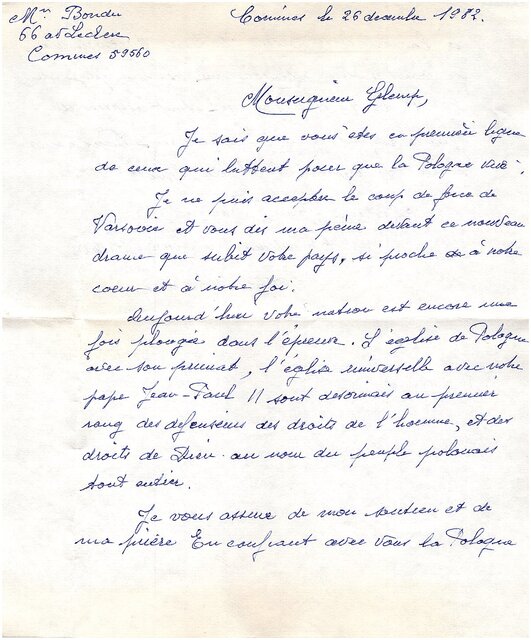 Mr Bondu
Comines le 26 decembre 1982.
66 at Leclerc
Comines 59560
Monseigneur Glemp,
Je sais que vous êtes en première ligne
de ceux qui luttent pour que la Pologne vive.
Je ne puis accepter le coup de force de
Varsovie et vous dis ma peine devant ce nouveau
drame que subit votre pays, si proche de à notre
coeur et à notre foi.
Aujourd'hui votre nation est encore une
fois plongée dans l'épreuve. L'église de Pologne
avec son primat, l'église universelle avec notre
pape Jean-Paul II sont desormais au premier
rang des defenseurs des droits de l'homme, et des
droits de Dieu au nom du peuple polonais
tout entier.
Je vous assure de mon soutien et de
ma prière En confiant avec vous la Pologne